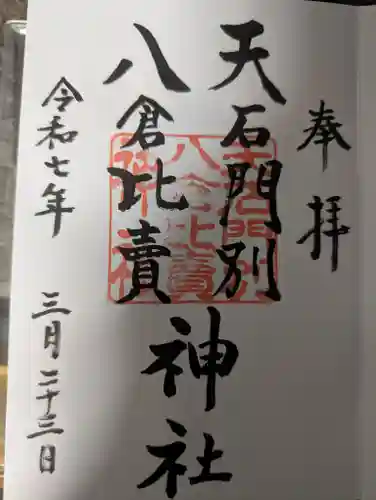 奉拝
天石門別
八倉比賣
神社
令和七年 三月二十三日